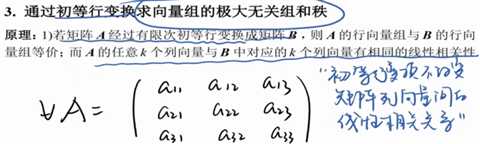 3. 通过初等行变换求向量组的极大无关组和秩
原理：1)若矩阵 A 经过有限次初等行变换成矩阵 B，则 A 的行向量组与 B 的行向
量组等价；而 A 的任意 k 个列向量与 B 中对应的 k 个列向量有相同的线性相关性
∀A =
a11 a12 a13
a21 a22 a23
a31 a32 a33
"初等行变换不改变
矩阵列向量间的
线性相关关系"